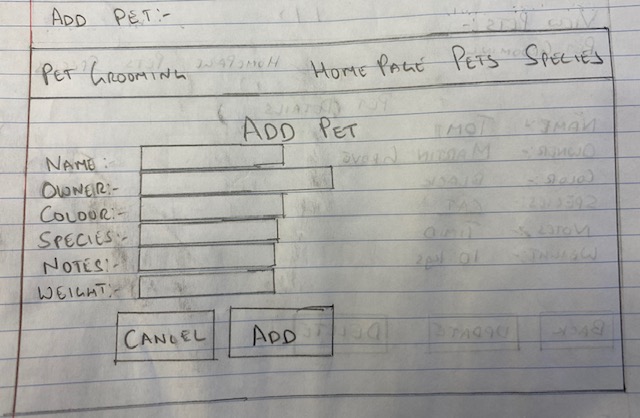 ADD PET:-
PET GROOMING HOME PAGE PETS SPECIES
ADD PET
NAME:
OWNER:-
COLOUR:-
SPECIES:-
NOTES:-
WEIGHT:-
CANCEL ADD